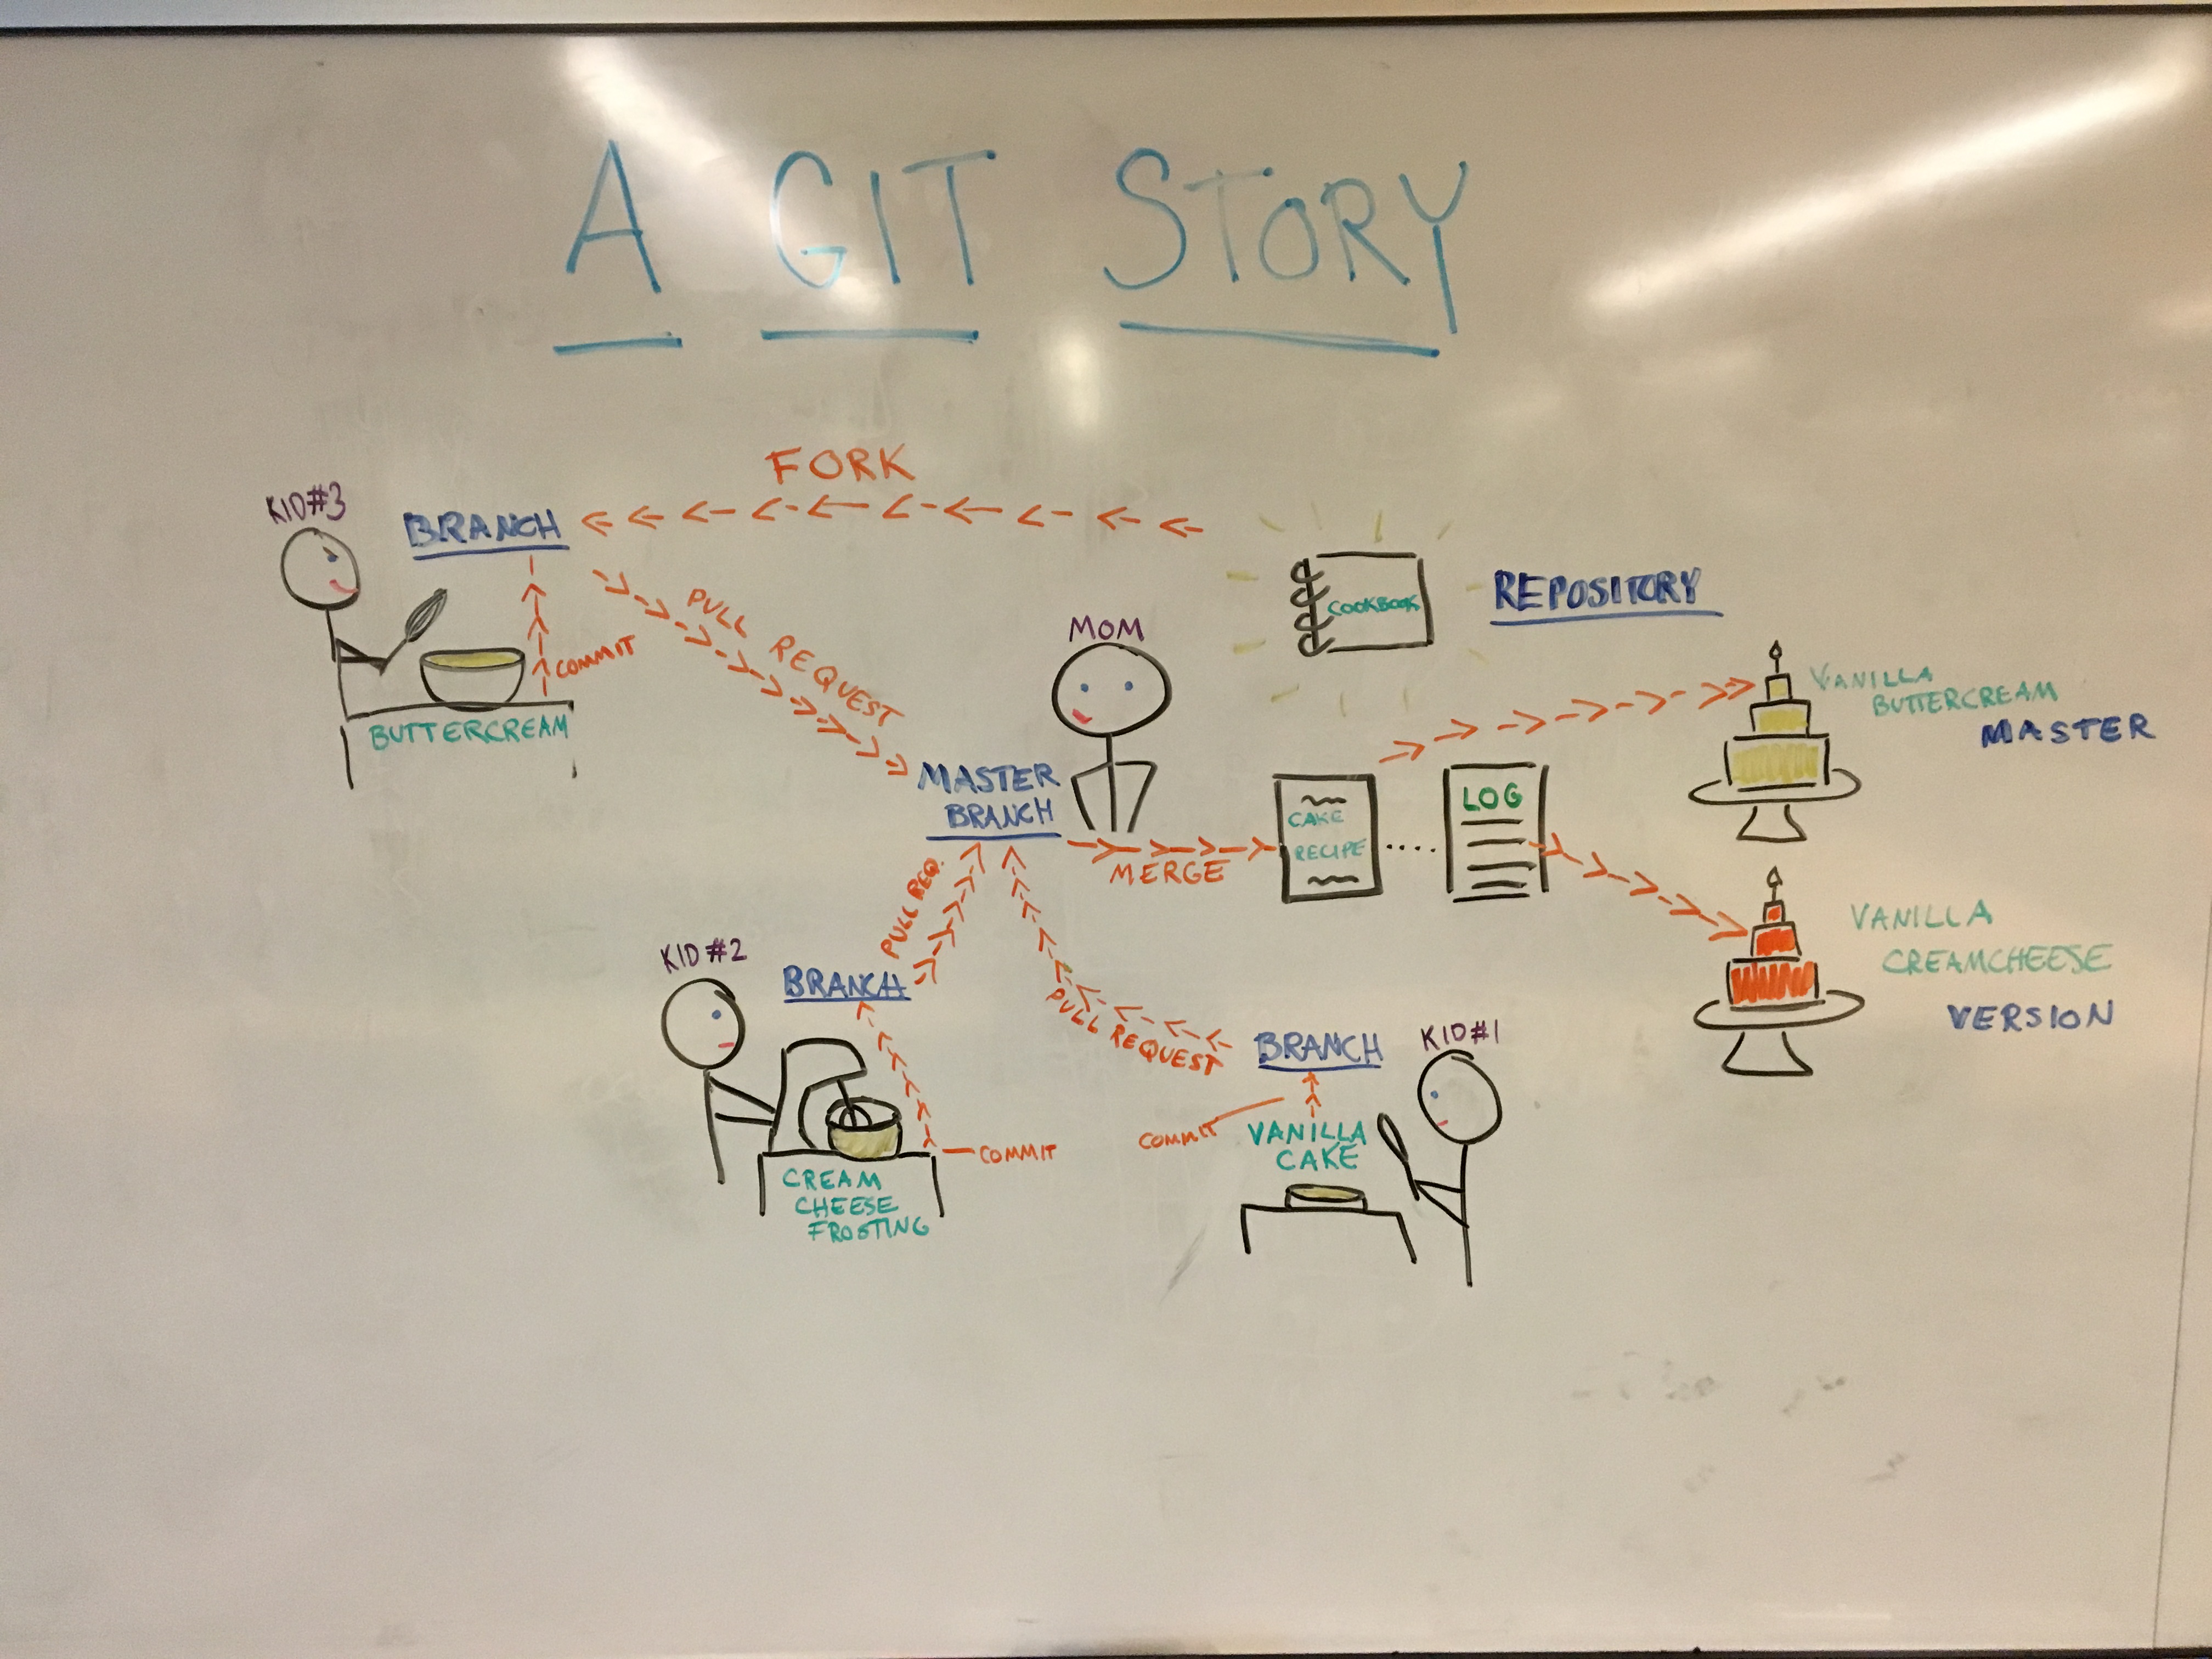 A GIT STORY
FORK
KID#3
BRANCH
COMMIT
BUTTERCREAM
PULL REQUEST
MOM
COOKBOOK
REPOSITORY
MASTER
BRANCH
MERGE
CAKE
RECIPE
LOG
VANILLA
BUTTERCREAM
MASTER
VANILLA
CREAMCHEESE
VERSION
PULL REQ.
KID#2
BRANCH
COMMIT
CREAM
CHEESE
FROSTING
PULL REQUEST
BRANCH
KID#1
COMMIT
VANILLA
CAKE